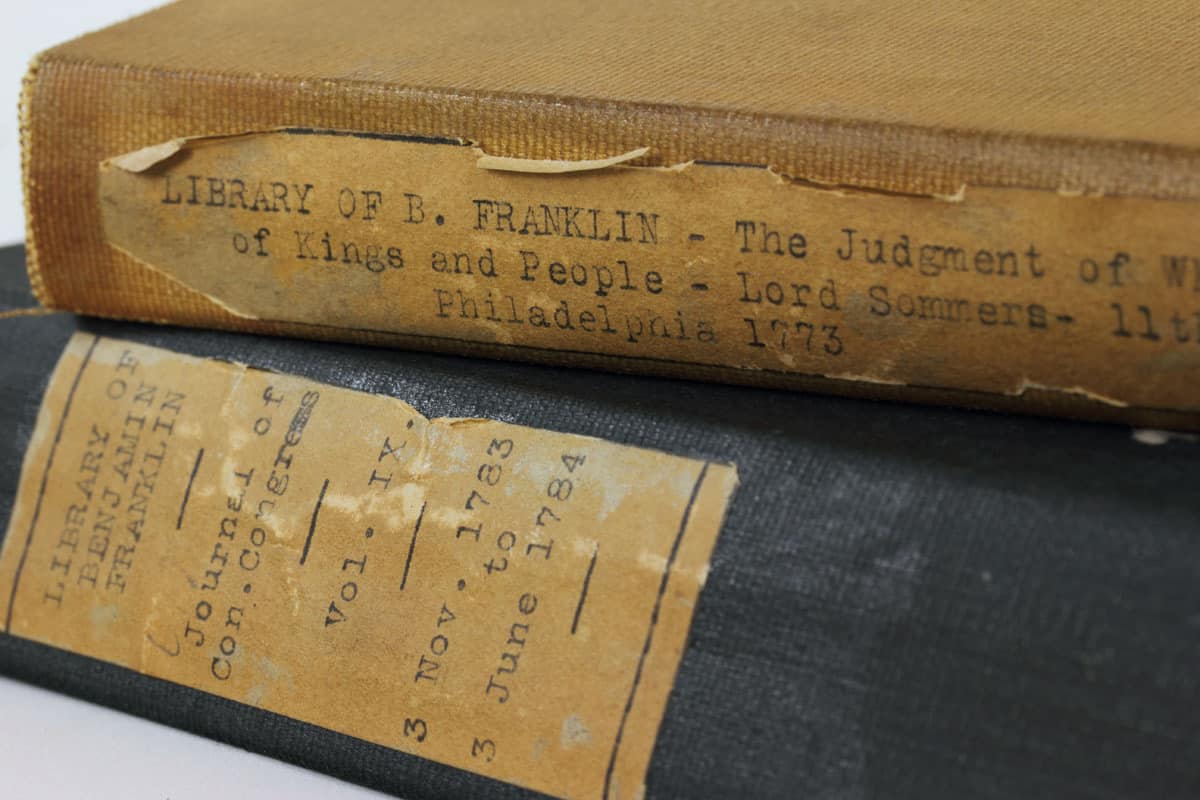 LIBRARY OF B. FRANKLIN - The Judgment of
of Kings and People - Lord Sommers- 11th
Philadelphia 1773
LIBRARY OF
BENJAMIN
FRANKLIN
Journal of
Con.Congress
Vol. IX.
3 Nov. 1783
to
3 June 1784